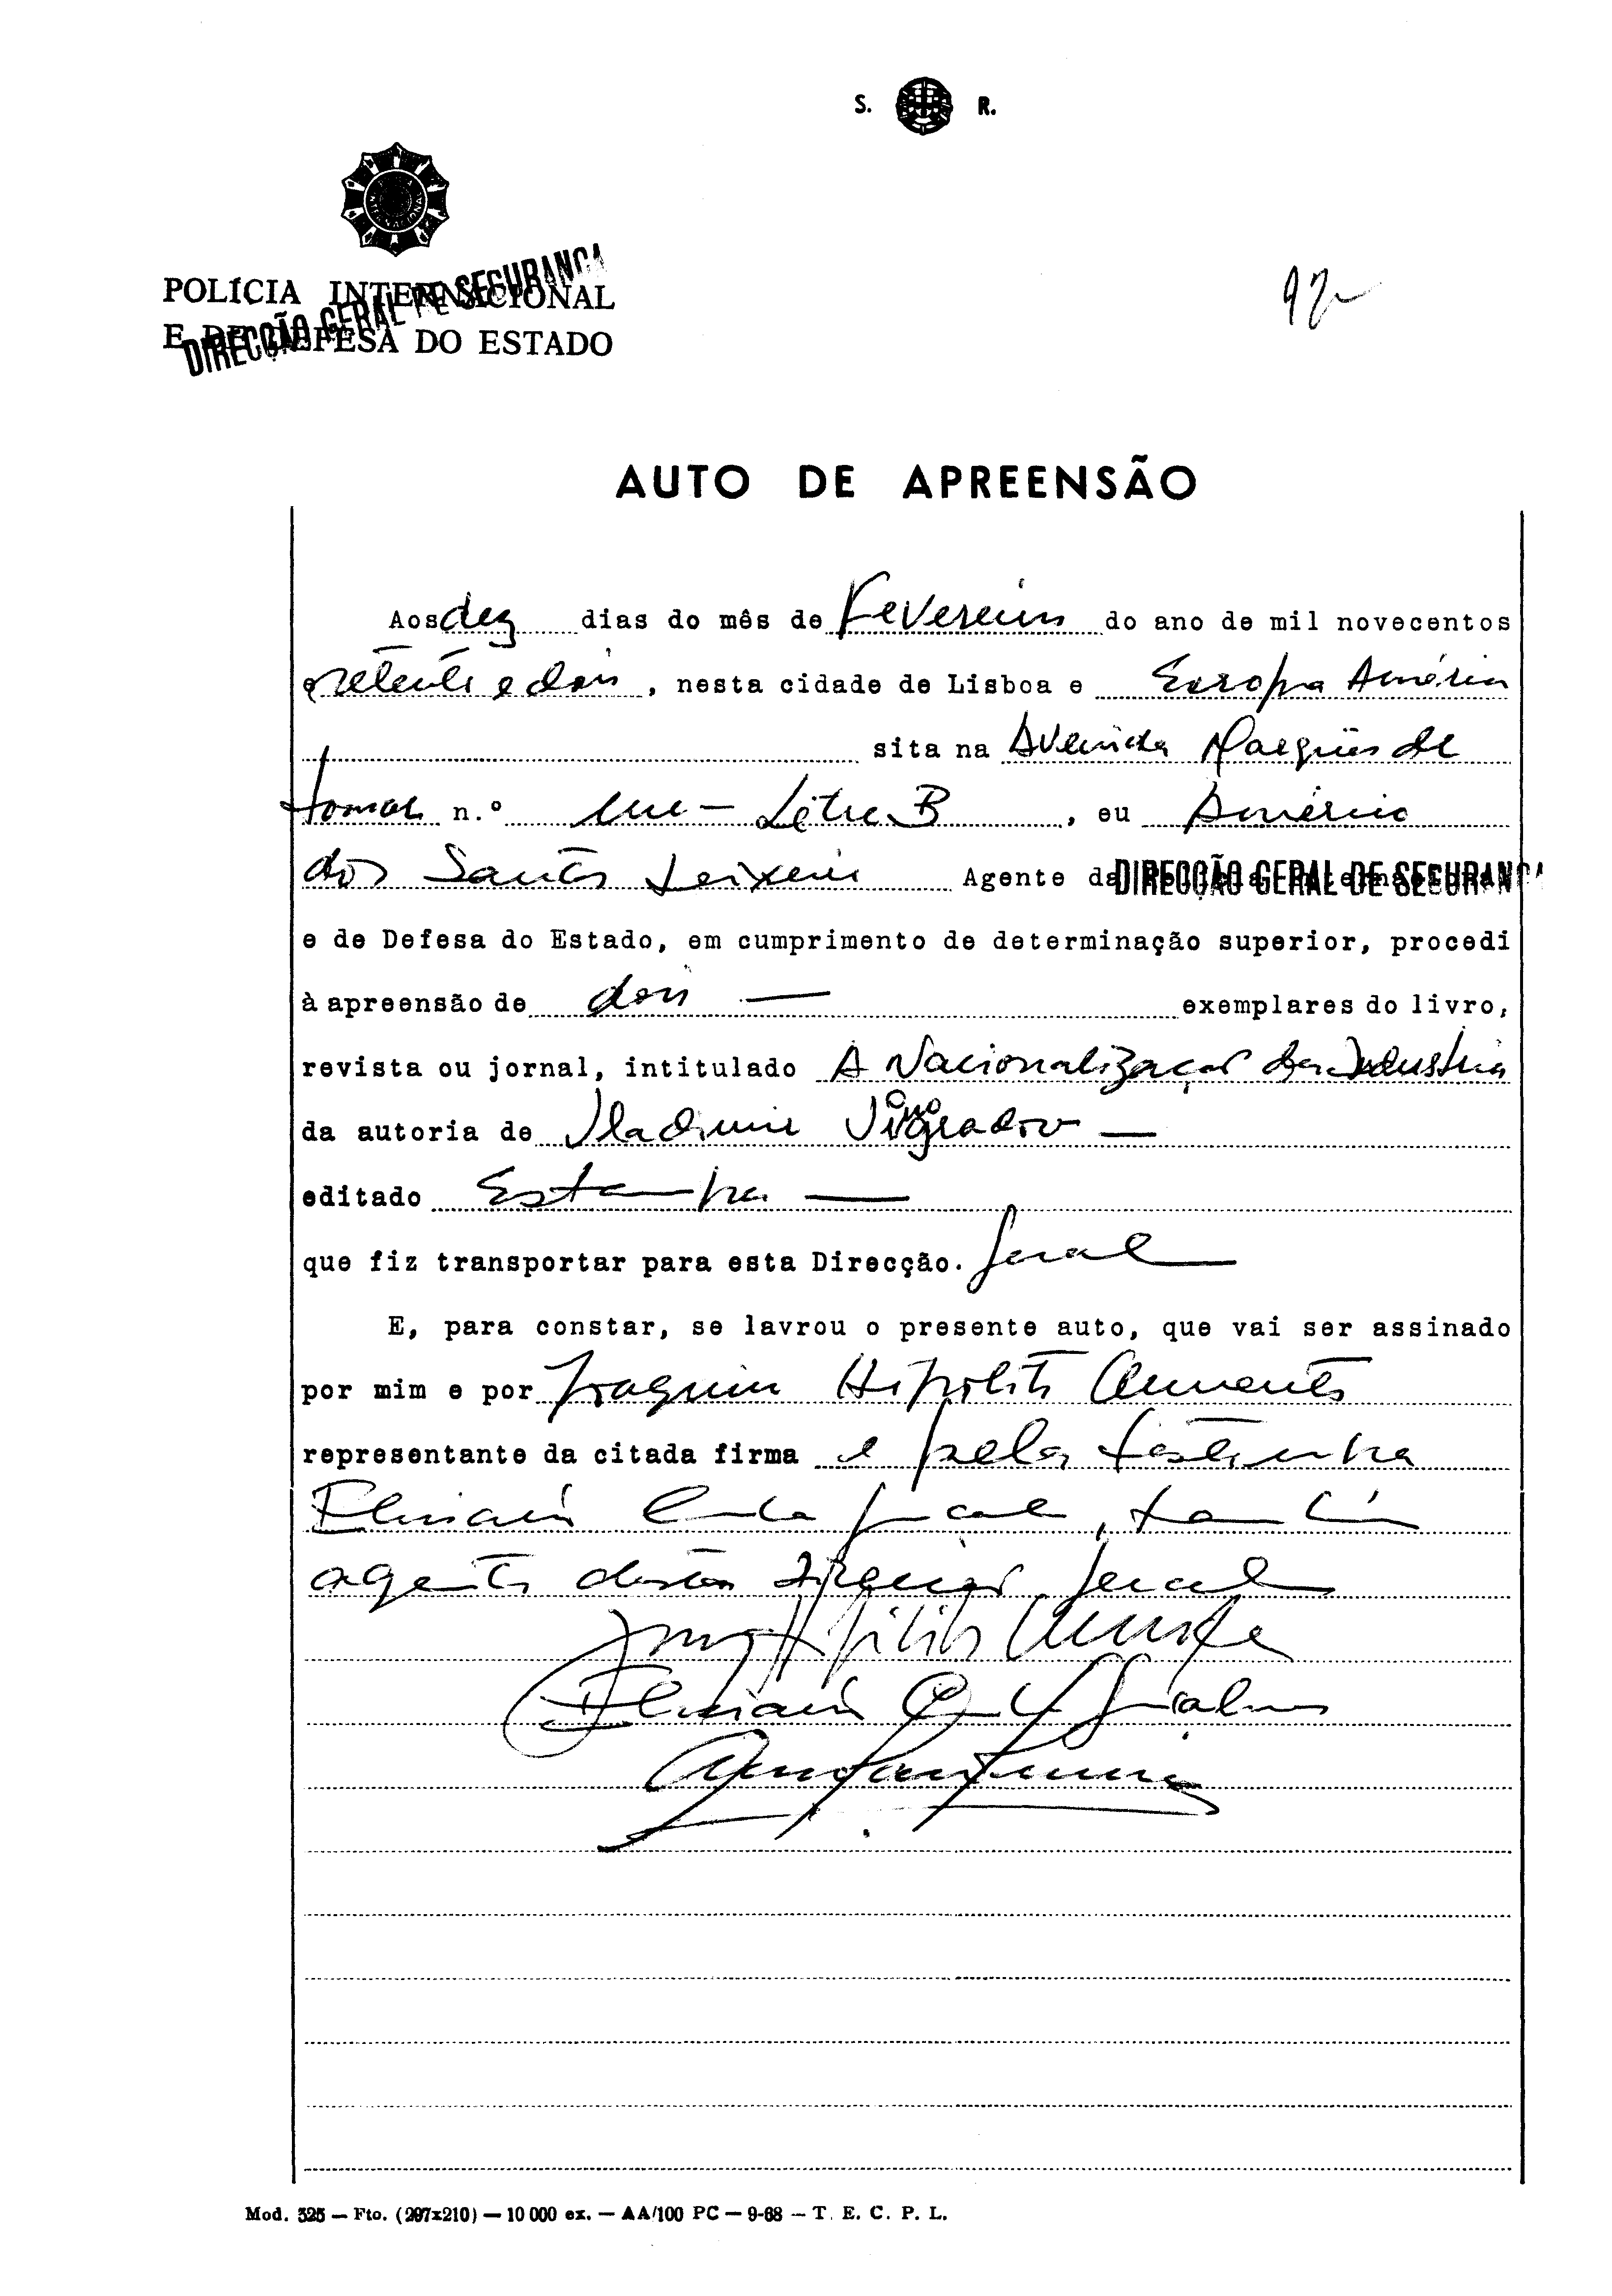 S. R.
POLÍCIA INTERNACIONAL
E DE DEFESA DO ESTADO
DIRECÇÃO GERAL DE SEGURANÇA
AUTO DE APREENSÃO
Aos dez dias do mês de Fevereiro do ano de mil novecentos
e setenta e dois, nesta cidade de Lisboa e Europa América
sita na Avenida Marquês de
Tomar n.º um — Letra B, eu Américo
dos Santos Teixeira Agente da DIRECÇÃO GERAL DE SEGURANÇA
e de Defesa do Estado, em cumprimento de determinação superior, procedi
à apreensão de dois — exemplares do livro,
revista ou jornal, intitulado A Nacionalização da Industria
da autoria de Vladimir Vinogradov —
editado Estampa —
que fiz transportar para esta Direcção. Geral
E, para constar, se lavrou o presente auto, que vai ser assinado
por mim e por Joaquim Hipólito Clemente
representante da citada firma e pela testemunha
também
agente desta Direcção Geral
Mod. 525 — Fto. (297x210) — 10 000 ex. — AA/100 PC — 9-68 — T. E. C. P. L.